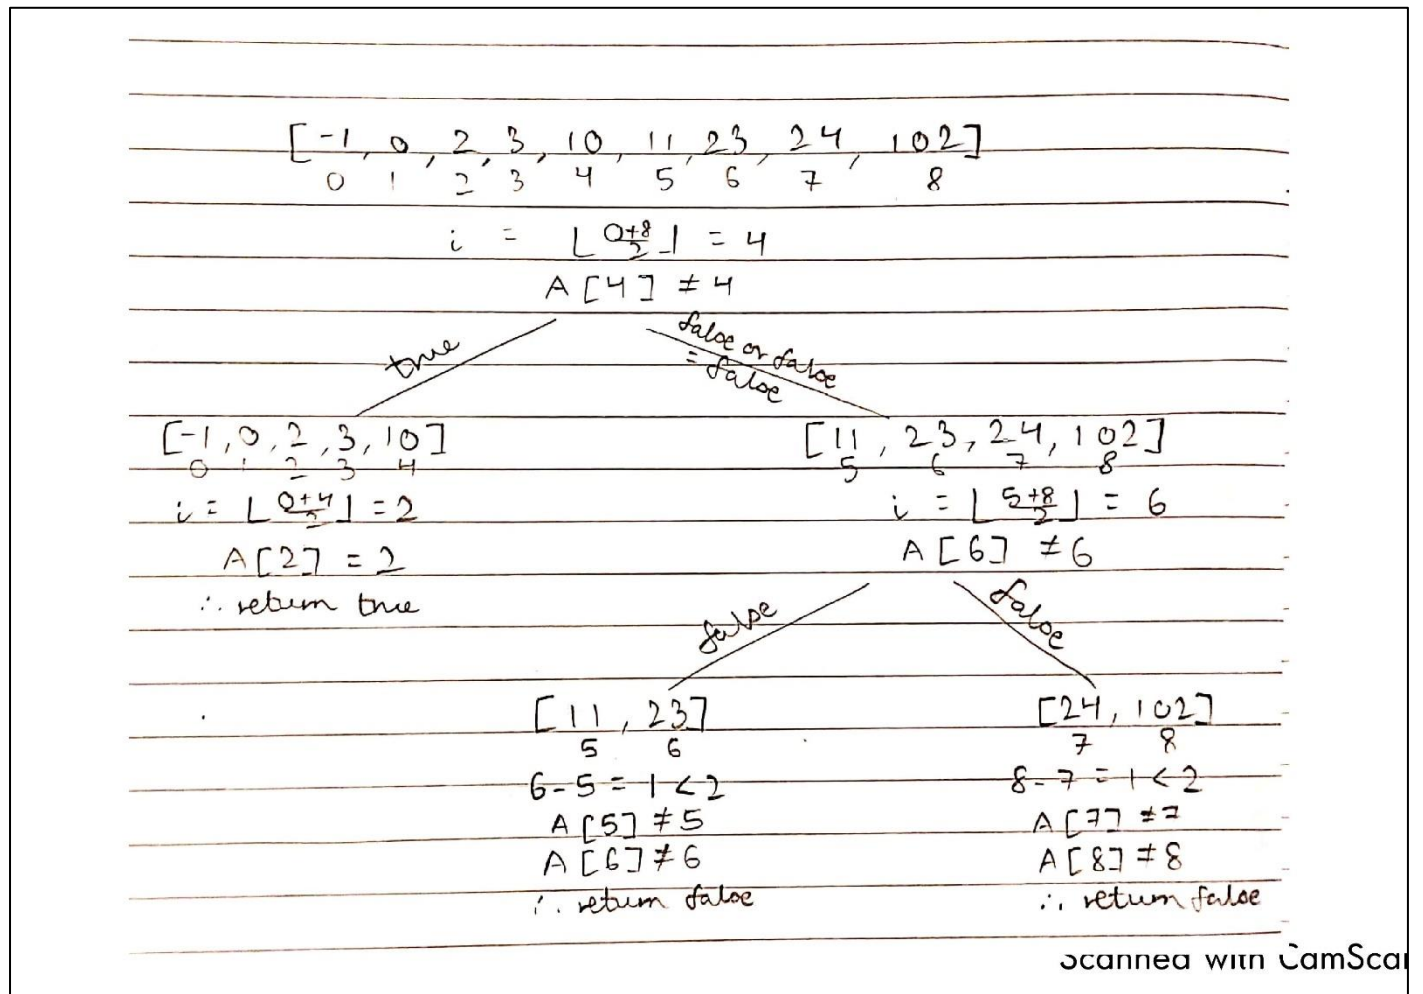 [-1, 0, 2, 3, 10, 11, 23, 24, 102]
0 1 2 3 4 5 6 7 8
i = ⌊ 0+8/2 ⌋ = 4
A[4] ≠ 4
true
false or false
= false
[-1, 0, 2, 3, 10]
0 1 2 3 4
i = ⌊ 0+4/2 ⌋ = 2
A[2] = 2
∴ return true
[11, 23, 24, 102]
5 6 7 8
i = ⌊ 5+8/2 ⌋ = 6
A[6] ≠ 6
false
false
[11, 23]
5 6
6-5 = 1 < 2
A[5] ≠ 5
A[6] ≠ 6
∴ return false
[24, 102]
7 8
8-7 = 1 < 2
A[7] ≠ 7
A[8] ≠ 8
∴ return false
Scanned with CamScan